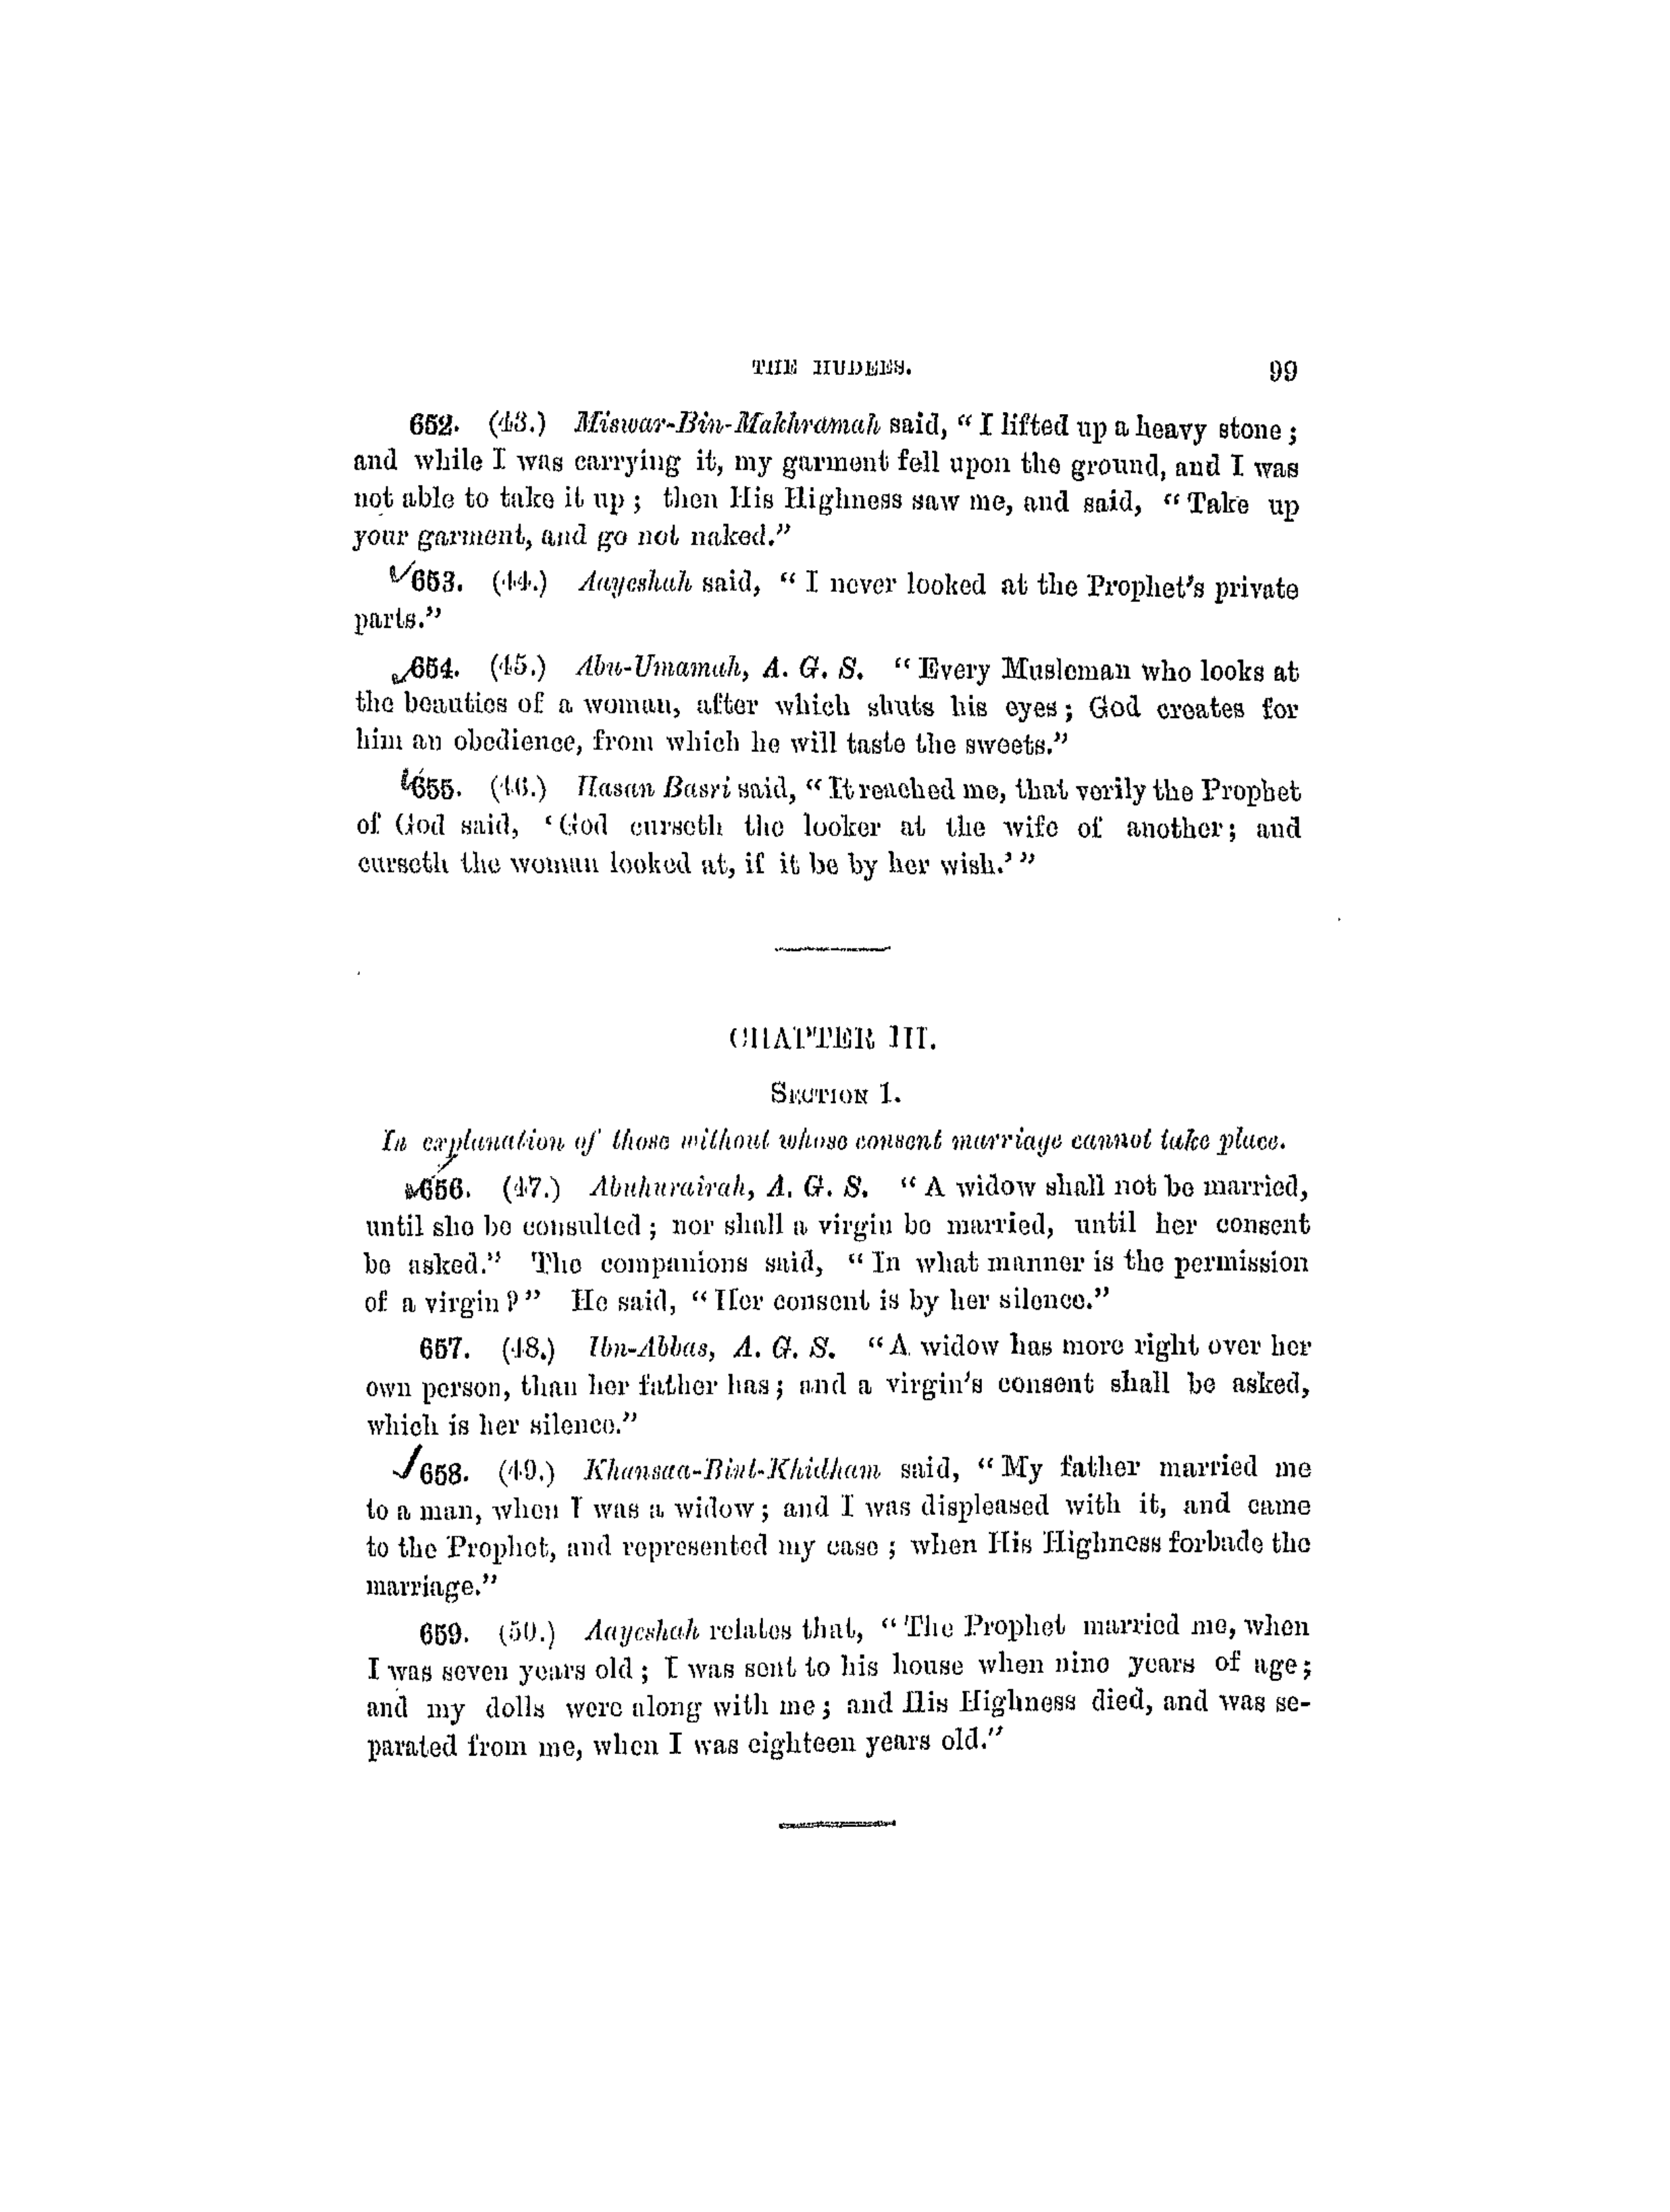 THE HUDEES. 99
652. (43.) Miswar-Bin-Makhramah said, “ I lifted up a heavy stone ;
and while I was carrying it, my garment fell upon the ground, and I was
not able to take it up ; then His Highness saw me, and said, “ Take up
your garment, and go not naked.”
653. (44.) Aayeshah said, “ I never looked at the Prophet's private
parts.”
654. (45.) Abu-Umamah, A. G. S. “ Every Musleman who looks at
the beauties of a woman, after which shuts his eyes ; God creates for
him an obedience, from which he will taste the sweets.”
655. (46.) Hasan Basri said, “ It reached me, that verily the Prophet
of God said, ‘ God curseth the looker at the wife of another ; and
curseth the woman looked at, if it be by her wish.’ ”
CHAPTER III.
SECTION 1.
In explanation of those without whose consent marriage cannot take place.
656. (47.) Abuhurairah, A. G. S. “ A widow shall not be married,
until she be consulted ; nor shall a virgin be married, until her consent
be asked.” The companions said, “ In what manner is the permission
of a virgin ? ” He said, “ Her consent is by her silence.”
657. (48.) Ibn-Abbas, A. G. S. “ A widow has more right over her
own person, than her father has ; and a virgin's consent shall be asked,
which is her silence.”
658. (49.) Khansaa-Bint-Khidham said, “ My father married me
to a man, when I was a widow ; and I was displeased with it, and came
to the Prophet, and represented my case ; when His Highness forbade the
marriage.”
659. (50.) Aayeshah relates that, “ The Prophet married me, when
I was seven years old ; I was sent to his house when nine years of age ;
and my dolls were along with me ; and His Highness died, and was se-
parated from me, when I was eighteen years old.”